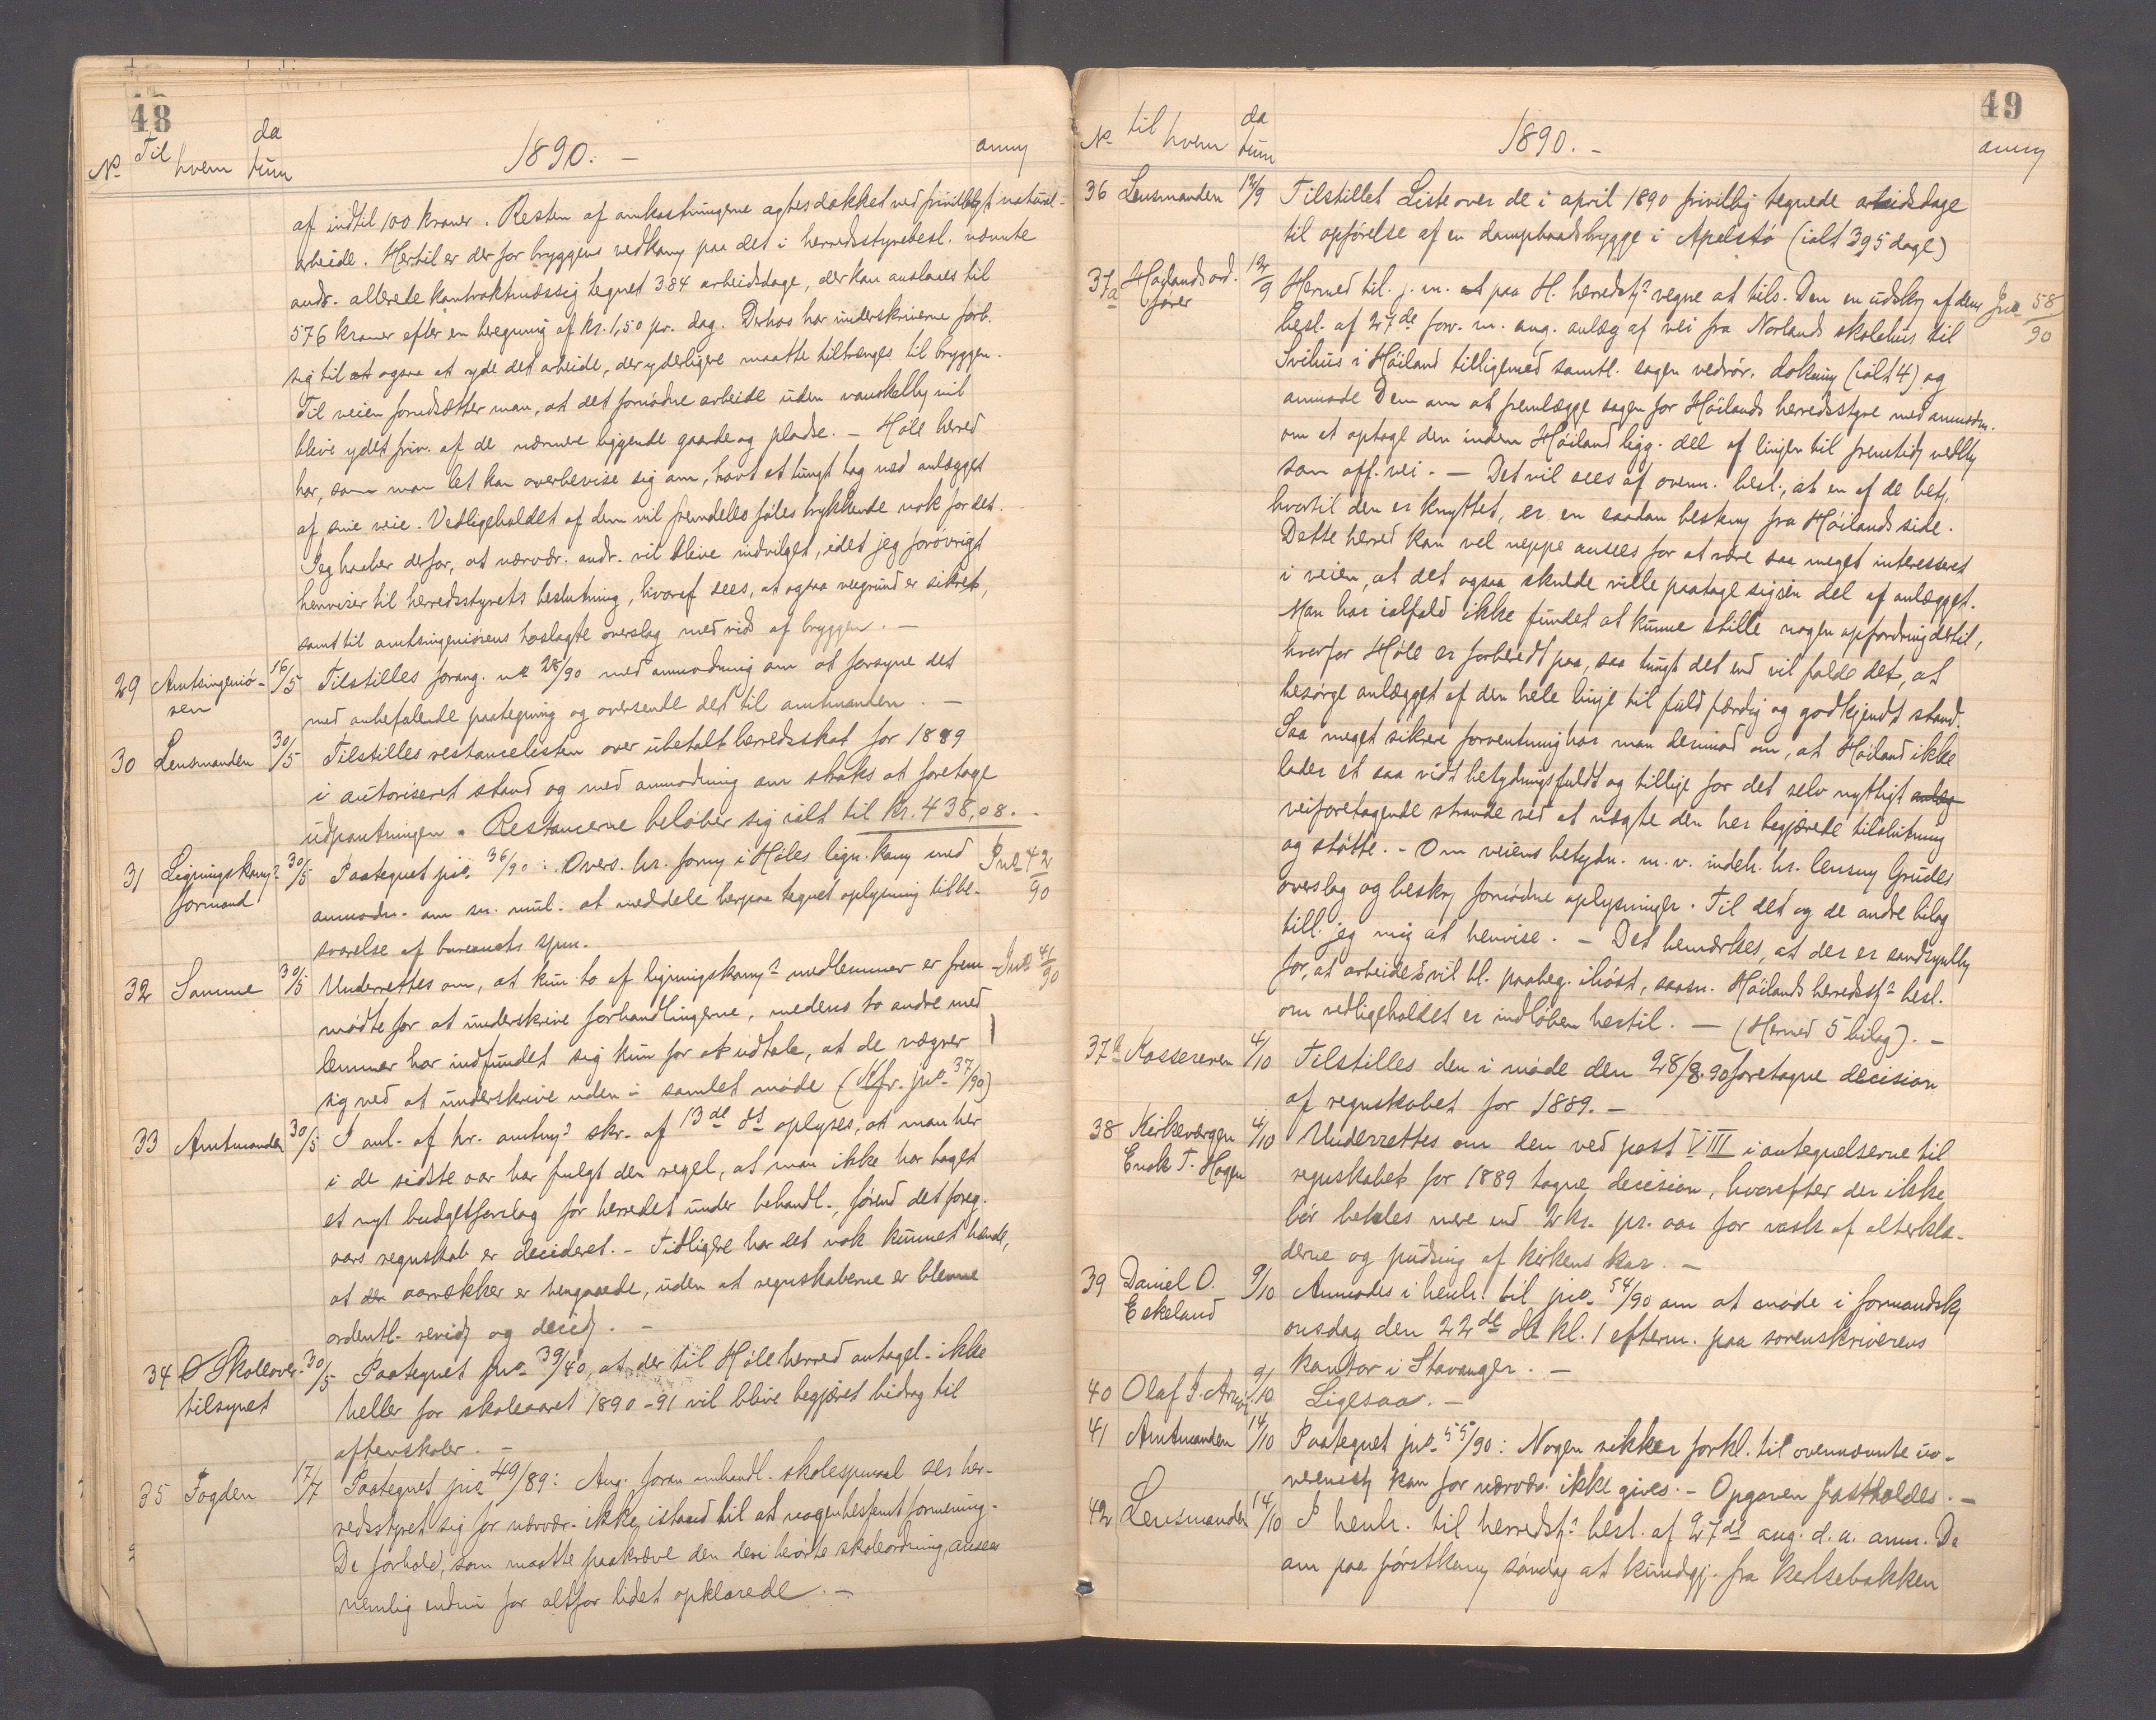 48
No Til hvem da tum 1890. – anm
af indtil 100 kroner. Resten af omkostningerne agtes dækket ved frivilligt natural-
arbeide. Hertil er der for bryggens vedkom paa det i herredsstyrebesl. nævnte
andr. allerede kontraktmæssig tegnet 384 arbeidsdage, der kan anslaaes til
576 kroner efter en beregning af kr. 1,50 pr. dag. Derhos har underskriverne forb.
sig til at ogsaa at yde det arbeide, der yderligere maatte tiltrænges til bryggen.
Til veien forudsætter man, at det fornødne arbeide uden vanskelig vil
blive ydet friv. af de nærmere liggende gaarde og pladse. – Høle herred
har, som man let kan overbevise sig om, havt et tungt tag ved anlægget
af sine veie. Vedligeholdet af dem vil fremdeles føles trykkende nok for det.
Jeg haaber derfor, at nærvær. andr. vil blive indvilget, idet jeg forøvrigt
henviser til herredsstyrets beslutning, hvoraf sees, at ogsaa veigrund er sikret,
samt til amtsingeniørens hoslagte overslag med rids af bryggen. –
29 Amtsingeniø-
ren 16/5 Tilstilles forang. no 28/90 med anmodning om at forsyne det
med anbefalende paategning og oversende det til amtmanden. –
30 Lensmanden 30/5 Tilstilles restancelisten over ubetalt herredsskat for 1889
i autoriseret stand og med anmodning om straks at foretage
udpantningen. Restancerne beløber sig ialt til kr. 438,08. –
31 Ligningskomns
formand 30/5 Paategnet jno. 36/90: Overs. hr. form i Høles lign. kom med Jno 42/90
anmodn. om sn. mul. at meddele herpaa tegnet oplysning til be-
svarelse af bureauets spm.
32 Samme 30/5 Underrettes om, at kun to af ligningskoms medlemmer er frem- Jno 41/90
mødte for at underskrive forhandlingerne, medens to andre med
lemmer har indfundet sig kun for at udtale, at de vægrer
sig ved at underskrive uden i samlet møde (Kfr. jno. 37/90)
33 Amtmanden 30/5 I anl. af hr. amtms skr. af 13de ds oplyses, at man her
i de sidste aar har fulgt den regel, at man ikke har taget
et nyt budgetforslag for herredet under behandl., førend det foreg.
aars regnskab er decideret. – Tidligere har det nok kunnet hænde,
at der aarrækker er hengaaede, uden at regnskaberne er blevne
ordentl. revid og decid. –
34 Skoleover-
tilsynet 30/5 Paategnet jno. 39/90, at der til Høle herred antagel. ikke
heller for skoleaaret 1890–91 vil blive begjæret bidrag til
aftenskoler. –
35 Fogden 17/7 Paategnet jno 49/89: Ang. foran omhandl. skolespørsmaal ser her-
redsstyret sig for nærvær. ikke istand til at nogen bestemt formening.
De forhold, som maatte paakræve den deri berørte skoleordning, ansees
nemlig endnu for altfor lidet opklarede. –
49
No til hvem da tum 1890. – anm
36 Lensmanden 12/9 Tilstillet Liste over de i april 1890 frivillig tegnede arbeidsdage
til opførelse af en dampbaadsbrygge i Apelstø (ialt 395 dage)
37a Høilands ord.
fører 12/9 Hermed til. j. m. at paa H. herredsts vegne at tils. Dem en udskr af dens Jno 58/90
besl. af 27de forr. m. ang. anlæg af vei fra Norlands skolehus til
Svihus i Høiland tilligemed samtl. sagen vedrør. dokum (ialt 4) og
anmode Dem om at fremlægge sagen for Høilands herredsstyre med anmodn.
om at optage den inden Høiland ligg. del af linjen til fremtid vedl
som off. vei. – Det vil sees af ovenn. besl., at en af de bet,
hvortil den er knyttet, er en saadan beslutn fra Høilands side.
Dette herred kan vel neppe ansees for at være saa meget interesseret
i veien, at det ogsaa skulde ville paatage sig sin del af anlægget.
Man har ialfald ikke fundet at kunne stille nogen opfordring dertil,
hvorfor Høle er forberedt paa, saa tungt det end vil falde det, at
besørge anlægget af den hele linje til fuld færdig og godkjendt stand.
Saa meget sikrere forventning har man derimod om, at Høiland ikke
lader et saa vidt betydningsfuldt og tillige for det selv nyttigt anlæg
veiforetagende strande ved at nægte den her begjærede tilslutning
og støtte. – Om veiens betydn. m. v. indeh. hr. lensm Grudes
overslag og beskr fornødne oplysninger. Til det og de andre bilag
till. jeg mig at henvise. – Det bemærkes, at der er sandsynlig
for, at arbeidet vil bl. paabeg. ihøst, saasn. Høilands herredssts besl.
om vedligeholdet er indløben hertil. – (Hermed 5 bilag). –
37b Kassereren 4/10 Tilstilles den i møde den 28/8.90 foretagne decision
af regnskabet for 1889. –
38 Kirkeværgen
Enok T. Hogn 4/10 Underrettes om den ved post VIII i antegnelserne til
regnskabet for 1889 tagne decision, hvorefter der ikke
bør betales mere end 2 kr. pr. aar for vask af alterklæ-
derne og pudsing af kirkens kar. –
39 Daniel O.
Eskeland 9/10 Anmodes i henh. til jno. 54/90 om at møde i formandsk
onsdag den 22de ds kl. 1 efterm. paa sorenskriverens
kontor i Stavanger. –
40 Olaf I. 9/10 Ligesaa. –
41 Amtmanden 14/10 Paategnet jno. 55/90: Nogen sikker forkl. til ovennævnte uo-
verenst kan for nærvær. ikke gives. – Opgaven fastholdes. –
42 Lensmanden 14/10 I henh. til herredsts besl. af 27de aug. d. a. anm. De
om paa førstkom søndag at kundgj. fra kirkebakken